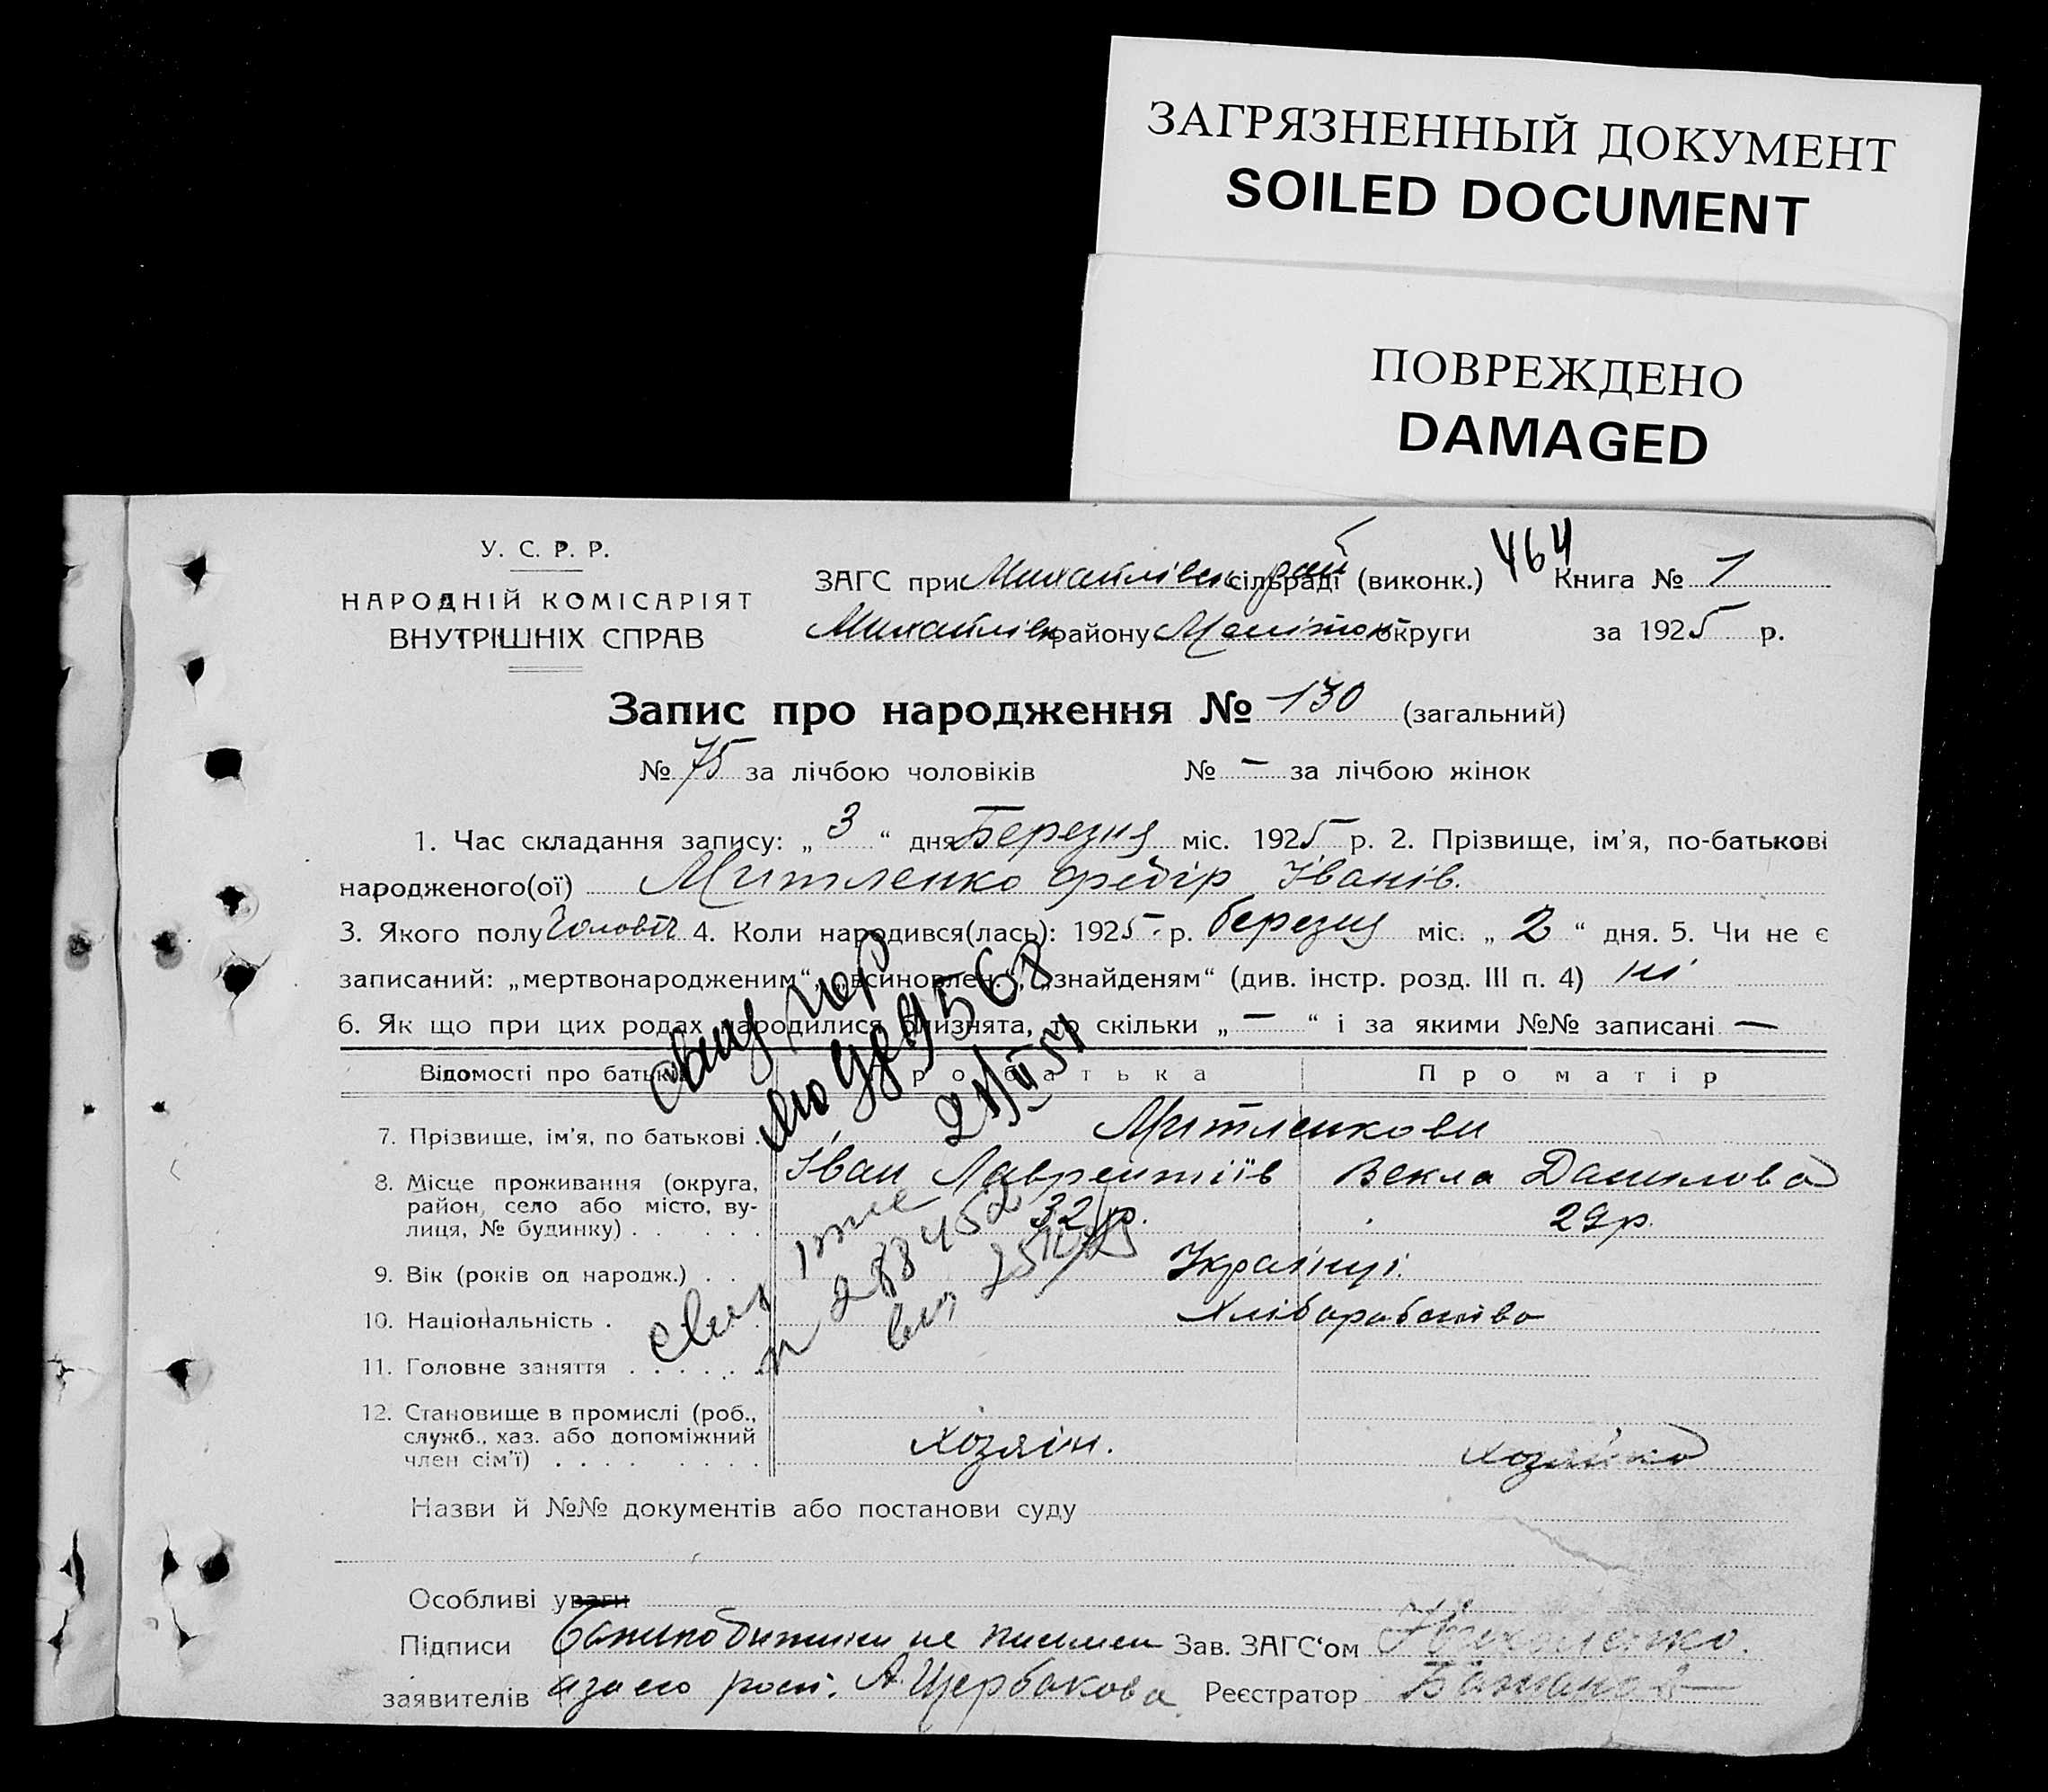 ЗАГРЯЗНЕННЫЙ ДОКУМЕНТ
SOILED DOCUMENT
ПОВРЕЖДЕНО
DAMAGED
У. С. Р. Р.
НАРОДНІЙ КОМІСАРІЯТ
ВНУТРІШНІХ СПРАВ
464
ЗАГС при Михайлівск рай сільраді (виконк.) Книга № 1
Михайлівск району Меліток округи за 1925 р.
Запис про народження № 130 (загальний)
№ 75 за лічбою чоловіків № — за лічбою жінок
1. Час складання запису: „ 3 “ дня Березня міс. 1925 р. 2. Прізвище, ім'я, по-батькові
народженого(ої) Митленко Федір Іванів.
3. Якого полу Чоловіч 4. Коли народився(лась): 1925 р. березня міс. „ 2 “ дня. 5. Чи не є
записаний: „мертвонародженим“, „всиновлен.“, „знайденям“ (див. інстр. розд. III п. 4) ні
6. Як що при цих родах народилися близнята, то скільки „ — “ і за якими №№ записані —
Відомості про батьків Про батька Про матір
7. Прізвище, ім'я, по батькові . Митленкови
8. Місце проживання (округа, Іван Лаврентіїв Векла Данилова
район, село або місто, ву-
лиця, № будинку) . . . . . . 32 р. 29 р.
9. Вік (років од народж.) . . Українці.
10. Національність . Хліборобство
11. Головне заняття . . . . . .
12. Становище в промислі (роб.,
служб., хаз. або допоміжний
член сім'ї) . . . . . . . . . хозяін. хозяйка
Назви й №№ документів або постанови суду
Особливі уваги
Підписи не писмен Зав. ЗАГС‘ом
заявителів рост. А Щербакова Реєстратор